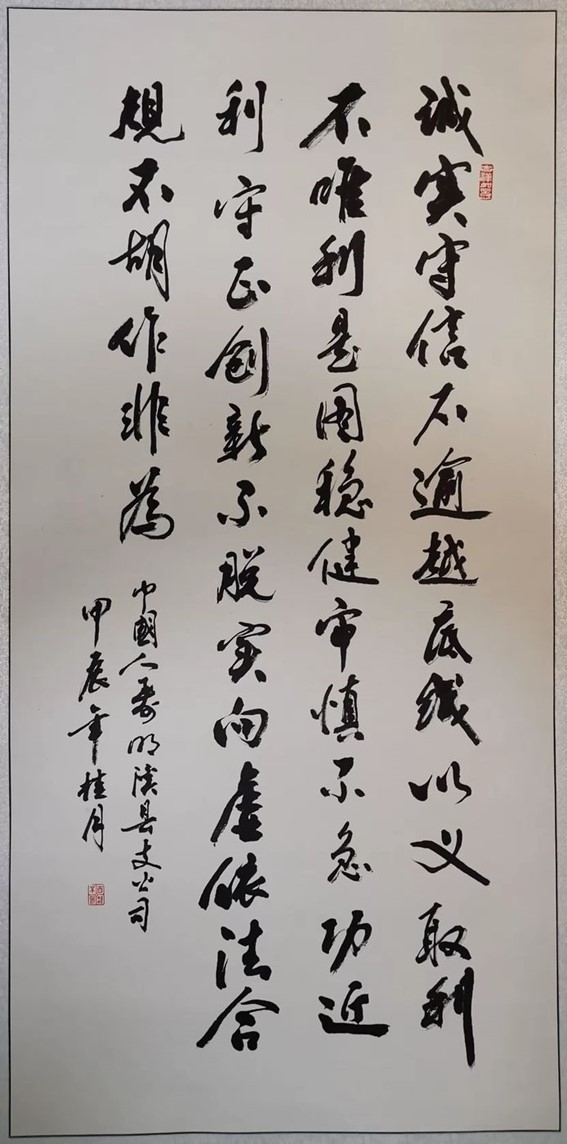 诚实守信不逾越底线以义取利
不唯利是图稳健审慎不急功近
利守正创新不脱实向虚依法合
规不胡作非為
中國人寿明溪县支公司
甲辰年桂月